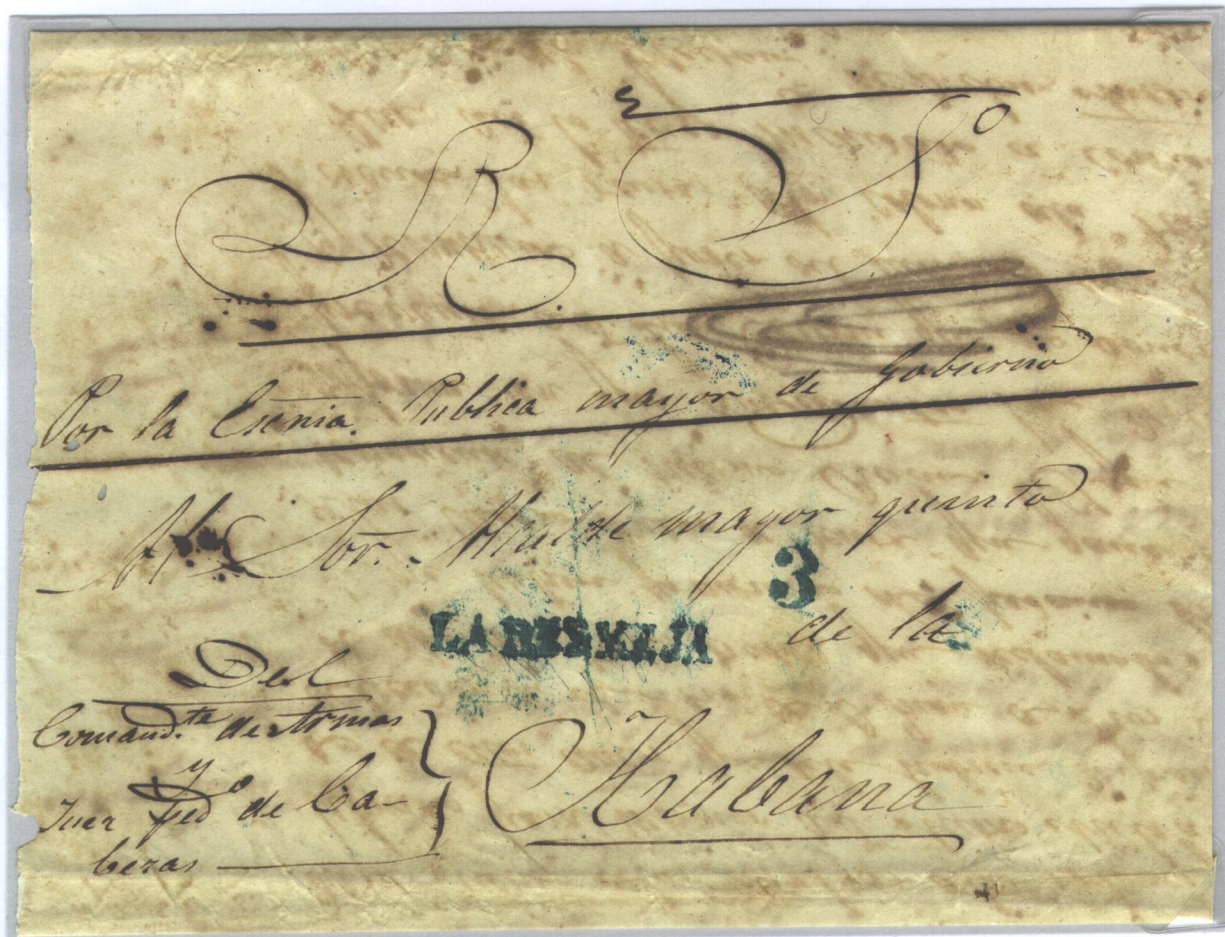 R. S.º
Por la Esc.nia. Publica mayor de Gobierno
Al Sor. Alcalde mayor quinto
3
LA BERMEJA
de la
Del
Comand.te de Armas
y
Juez ped.º de Ca-
bezas
Habana